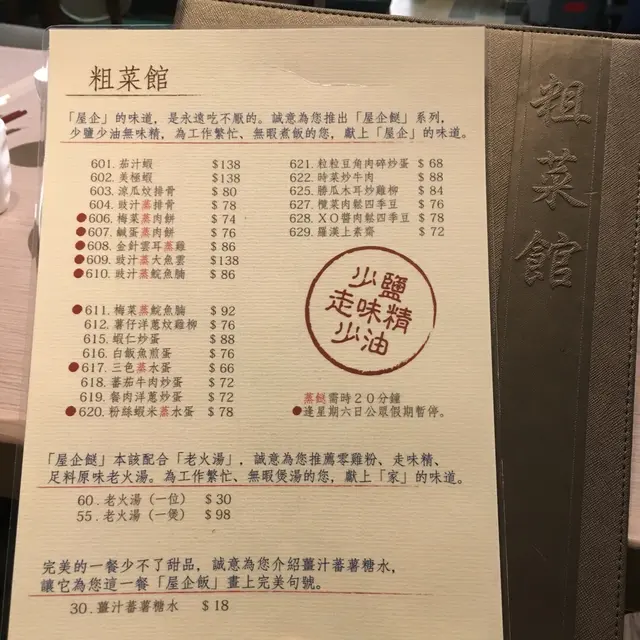 粗菜館
「屋企」的味道，是永遠吃不厭的。誠意為您推出「屋企餸」系列，
少鹽少油無味精，為工作繁忙、無暇煮飯的您，獻上「屋企」的味道。
601. 茄汁蝦 $138
602. 美極蝦 $138
603. 涼瓜炆排骨 $80
604. 豉汁蒸排骨 $78
606. 梅菜蒸肉餅 $74
607. 鹹蛋蒸肉餅 $76
608. 金針雲耳蒸雞 $86
609. 豉汁蒸大魚雲 $138
610. 豉汁蒸鯇魚腩 $86
611. 梅菜蒸鯇魚腩 $92
612. 薯仔洋蔥炆雞柳 $76
615. 蝦仁炒蛋 $88
616. 白飯魚煎蛋 $76
617. 三色蒸水蛋 $66
618. 蕃茄牛肉炒蛋 $72
619. 餐肉洋蔥炒蛋 $72
620. 粉絲蝦米蒸水蛋 $78
621. 粒粒豆角肉碎炒蛋 $68
622. 時菜炒牛肉 $88
625. 勝瓜木耳炒雞柳 $84
627. 欖菜肉鬆四季豆 $76
628. XO醬肉鬆四季豆 $78
629. 羅漢上素齋 $72
少鹽
走味精
少油
蒸餸需時20分鐘
逢星期六日公眾假期暫停。
「屋企餸」本該配合「老火湯」，誠意為您推薦零雞粉、走味精、
足料原味老火湯。為工作繁忙、無暇煲湯的您，獻上「家」的味道。
60. 老火湯（一位） $30
55. 老火湯（一煲） $98
完美的一餐少不了甜品，誠意為您介紹薑汁蕃薯糖水，
讓它為您這一餐「屋企飯」畫上完美句號。
30. 薑汁蕃薯糖水 $18
粗菜館